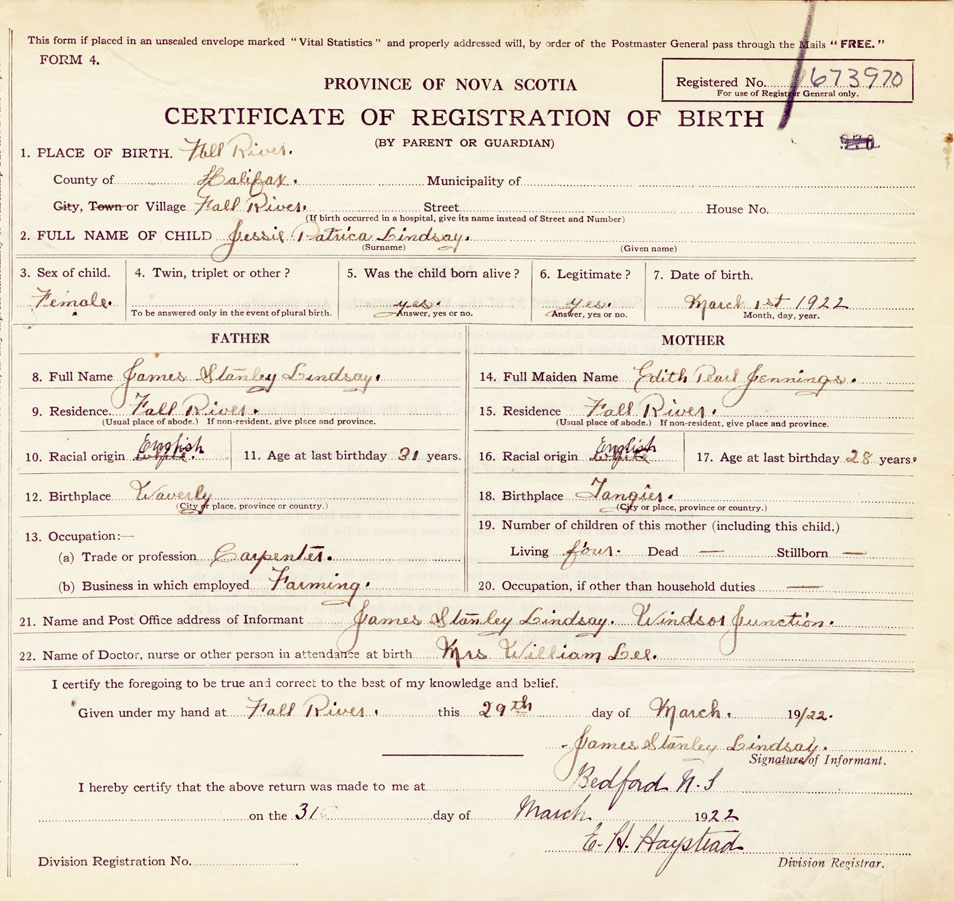 This form if placed in an unsealed envelope marked "Vital Statistics" and properly addressed will, by order of the Postmaster General pass through the Mails "FREE."
FORM 4.
PROVINCE OF NOVA SCOTIA
Registered No. 673970
For use of Registrar General only.
CERTIFICATE OF REGISTRATION OF BIRTH
(BY PARENT OR GUARDIAN)
1. PLACE OF BIRTH. Fall River.
County of Halifax. Municipality of
City, Town or Village Fall River. Street House No.
(If birth occurred in a hospital, give its name instead of Street and Number)
2. FULL NAME OF CHILD Jessie Patrica Lindsay.
(Surname) (Given name)
3. Sex of child. 4. Twin, triplet or other? 5. Was the child born alive? 6. Legitimate? 7. Date of birth.
Female. yes. yes. March 1st 1922
To be answered only in the event of plural birth. Answer, yes or no. Answer, yes or no. Month, day, year.
FATHER MOTHER
8. Full Name James Stanley Lindsay. 14. Full Maiden Name Edith Pearl Jennings.
9. Residence. Fall River. 15. Residence Fall River.
(Usual place of abode.) If non-resident, give place and province. (Usual place of abode.) If non-resident, give place and province.
10. Racial origin English 11. Age at last birthday 31 years. 16. Racial origin English 17. Age at last birthday 28 years.
12. Birthplace Waverly 18. Birthplace Tangier.
(City or place, province or country.) (City or place, province or country.)
13. Occupation:— 19. Number of children of this mother (including this child.)
(a) Trade or profession Carpenter. Living four. Dead — Stillborn —
(b) Business in which employed Farming. 20. Occupation, if other than household duties —
21. Name and Post Office address of Informant James Stanley Lindsay. Windsor Junction.
22. Name of Doctor, nurse or other person in attendance at birth Mrs William Lee.
I certify the foregoing to be true and correct to the best of my knowledge and belief.
Given under my hand at Fall River. this 29th day of March. 19/22.
James Stanley Lindsay.
Signature of Informant.
I hereby certify that the above return was made to me at Bedford N.S
on the 31 day of March 1922
E. H. Haystead
Division Registration No. Division Registrar.